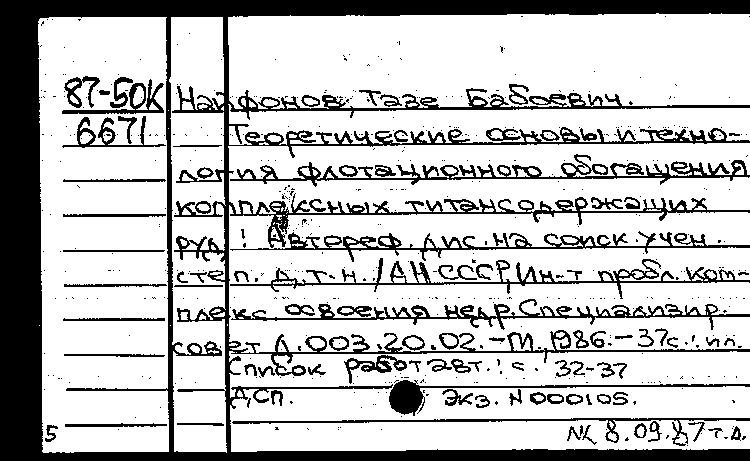 87-50К Найфонов, Тазе Бабоевич.
6671 Теоретические основы и техно-
логия флотационного обогащения
комплексных титансодержащих
руд : Автореф. дис. на соиск. учен.
степ. д.т.н. / АН СССР, Ин-т пробл. ком-
плекс. освоения недр. Специализир.
совет Д.003.20.02. - М., 1986. - 37с. : ил.
Список работ авт. : с. 32-37
ДСП. Экз. N 000105.
5 8.09.87 т.д.